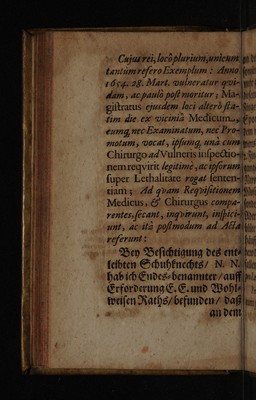 Cujus rei, locô plurium, unicum
tantum refero Exemplum: Anno
1654. 28. Mart. vulneratur qvi-
dam, ac paulò post moritur; Ma-
gistratus ejusdem loci alterô sta-
tim die ex viciniâ Medicum,
eumq; nec Examinatum, nec Pro-
motum, vocat, ipsumq; unà cum
Chirurgo ad Vulneris inspectio-
nem reqvirit legitimè, ac ipsorum
super Lethalitate rogat senten-
tiam; Ad qvam Reqvisitionem
Medicus, & Chirurgus compa-
rentes, secant, inqvirunt, inspici-
unt, ac ità postmodum ad Acta
referunt:
Bey Besichtigung des ent-
leibten Schuhknechts/ N. N.
hab ich Endes-benannter/ auff
Erforderung E. E. und Wohl-
weisen Raths/ befunden/ daß
an dem